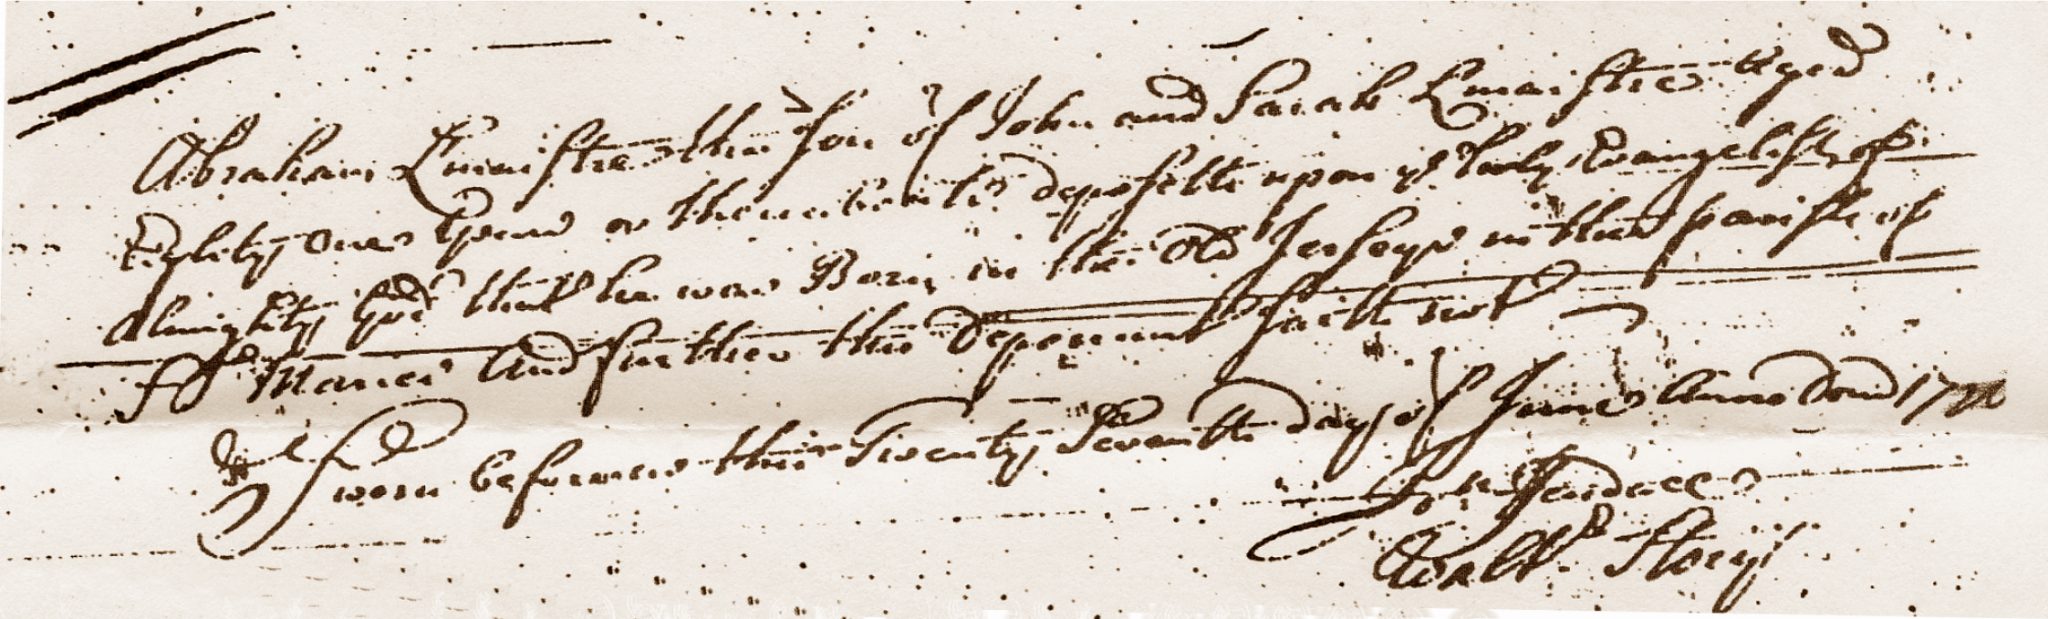 Abraham Lmaistre the son of John and Sarah Lmaistre Aged
Eighty one Years or thereabouts deposeth upon ye holy Evangelist of
Almighty God that he was Born in the Old Jerseys in the parish of
St Maries And further this Deponent saith not
Sworn before me this Twenty Seventh day of June Anno Dom 17
Walt Story